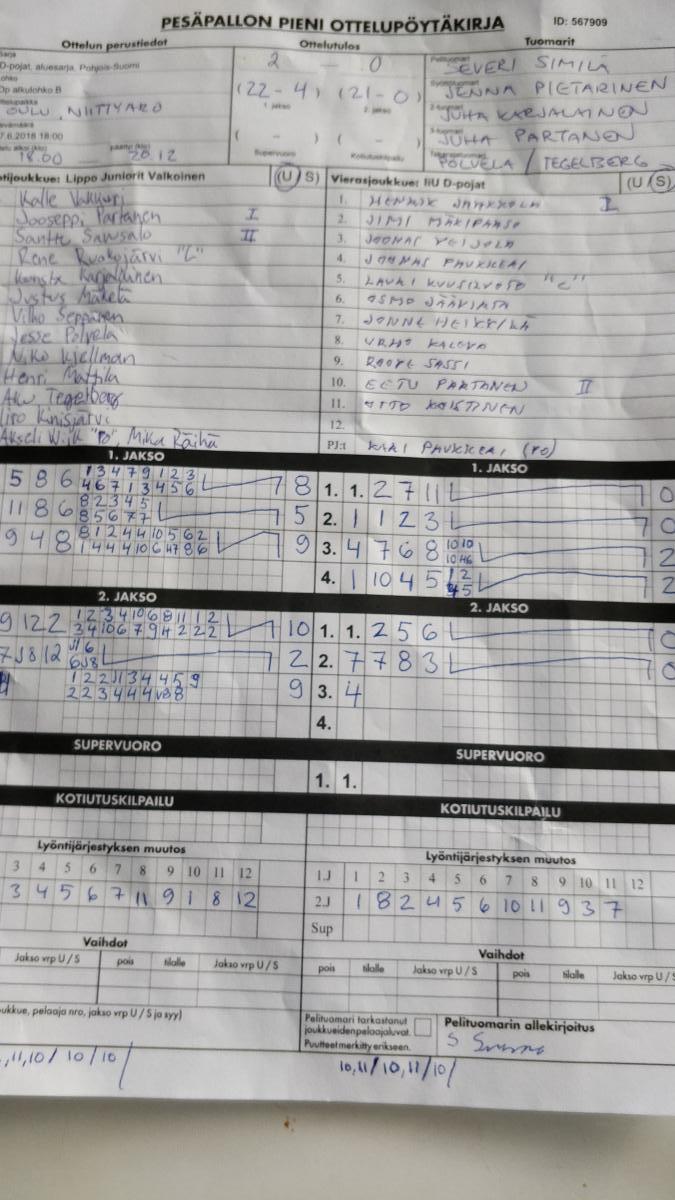 PESÄPALLON PIENI OTTELUPÖYTÄKIRJA
ID: 567909
Ottelun perustiedot
Ottelutulos
Tuomarit
D-pojat, aluesarja, Pohjois-Suomi
alkulohko B
OULU, NIITTYARO
7.6.2018 18:00
18.00 20.12
2 - 0
(22-4) (21-0)
1. jakso 2. jakso
( - ) ( - )
Supervuoro Kotiutuskilpailu
SEVERI SIMILÄ
JENNA PIETARINEN
JUHA KARJALAINEN
JUHA PARTANEN
POLVELA / TEGELBERG
tijoukkue: Lippo Juniorit Valkoinen (U S)
Vierasjoukkue: IiU D-pojat (U S)
Kalle
Jooseppi Partanen I
Santtu Sansalo II
Rene Ruokojärvi "C"
Karjalainen
Justus Mäkelä
Vilho Seppänen
Jesse Polvela
Niko Kjellman
Henri Mattila
Aku Tegelberg
Iiro Kinisjärvi
Akseli Wiik "PO", Mika Räihä
1. HENRIK JAAKKOLA I
2. JIMI MÄKIPAASO
3. JOONAS VEIJOLA
4. JOONAS PAUKKERI
5. LAURI "C"
6. OSMO
7. JONNE HEIKKILÄ
8. URHO KALEVA
9. ROOPE SASSI
10. EETU PARTANEN II
11. OTTO KOISTINEN
12.
PJ:t KARI PAUKKERI (PO)
1. JAKSO
1. JAKSO
5 8 6 1 3 4 7 9 1 2 3 8
4 6 7 1 3 4 5 6
11 8 6 8 2 3 4 5 5
8 5 6 7 7
9 4 8 8 1 2 4 4 10 5 6 2 9
1. 1. 2 7 11 0
2. 1 1 2 3 0
3. 4 7 6 8 10 10 2
4. 1 10 4 5 1 2 2
4 5
2. JAKSO
2. JAKSO
9 12 2 1 2 3 4 10 6 8 11 1 2 10
3 4 10 6 7 9 4 2 2 2
7 8 12 2
1 2 2 11 3 4 4 5 9 9
1. 1. 2 5 6 0
2. 7 7 8 3 0
3. 4
4.
SUPERVUORO
SUPERVUORO
1. 1.
KOTIUTUSKILPAILU
KOTIUTUSKILPAILU
Lyöntijärjestyksen muutos
3 4 5 6 7 8 9 10 11 12
3 4 5 6 7 11 9 1 8 12
Lyöntijärjestyksen muutos
1.J 1 2 3 4 5 6 7 8 9 10 11 12
2.J 1 8 2 4 5 6 10 11 9 3 7
Sup
Vaihdot
Jakso vrp U / S pois tilalle Jakso vrp U / S
Vaihdot
pois tilalle Jakso vrp U / S pois tilalle Jakso vrp U /
oukkue, pelaaja nro, jakso vrp U / S ja syy)
Pelituomari tarkastanut
joukkueidenpelaajaluvat.
Puutteet merkitty erikseen.
Pelituomarin allekirjoitus
,11,10/ 10/10/
10,11/10,11/10/